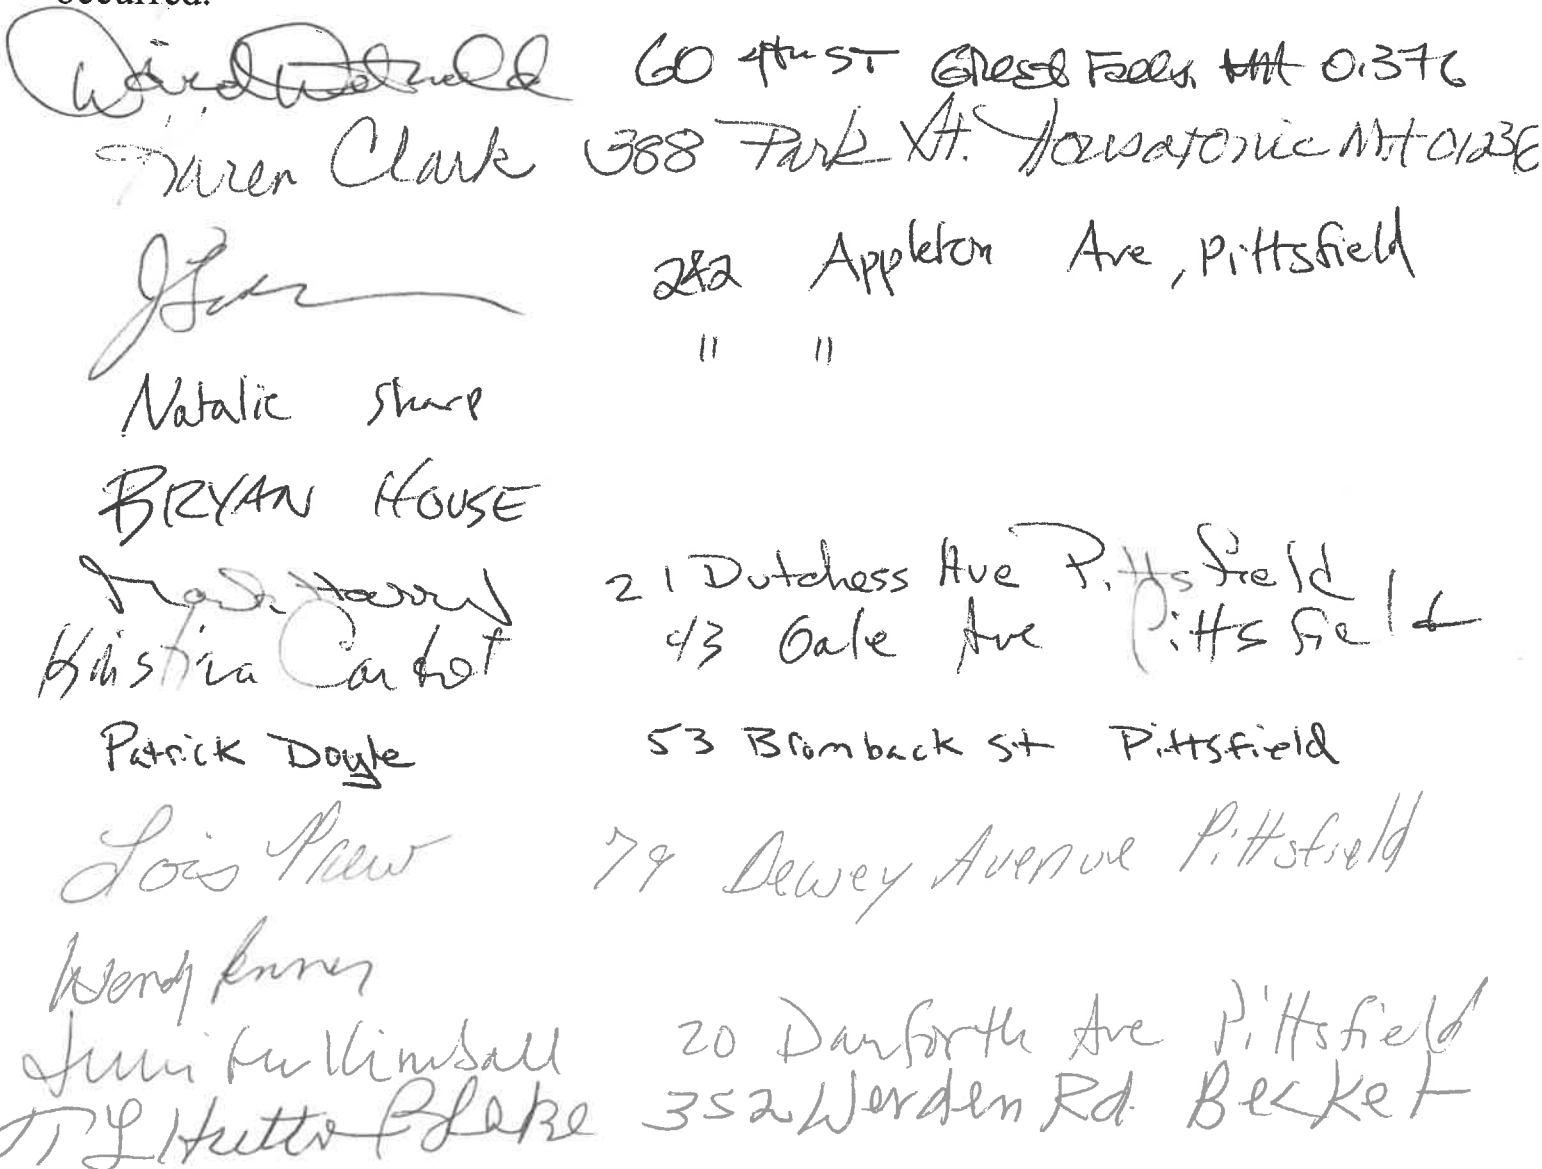 occurred.
60 4th ST Falls, 01376
Karen Clark 388 Park St. Housatonic MA 01236
242 Appleton Ave, Pittsfield
" "
Natalie Sharp
BRYAN HOUSE
21 Dutchess Ave Pittsfield
Kristina 43 Gale Ave Pittsfield
Patrick Doyle 53 Bromback St Pittsfield
Lois 79 Dewey Avenue Pittsfield
Wendy
Kimball 20 Danforth Ave Pittsfield
Blake 352 Werden Rd. Becket